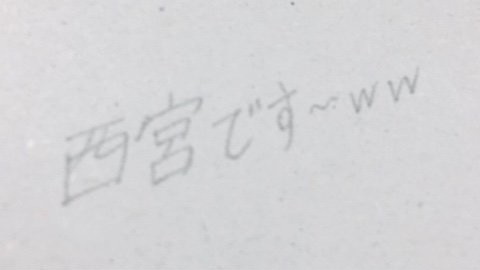 西宮です~ww